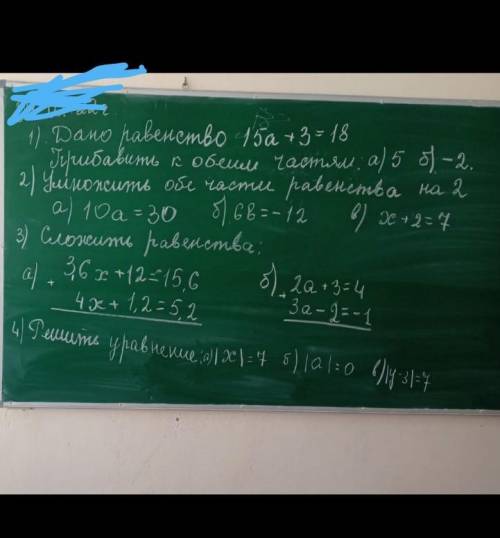 1) Дано равенство 15a+3=18
Прибавить к обеим частям: а) 5 б) -2.
2) Умножить обе части равенства на 2
а) 10a=30 б) 6в=-12 в) x+2=7
3) Сложить равенства:
а) + 3,6x+12=15,6 б) + 2a+3=4
4x+1,2=5,2 3a-2=-1
4) Решить уравнение: а) |x|=7 б) |a|=0 в) |y-3|=7